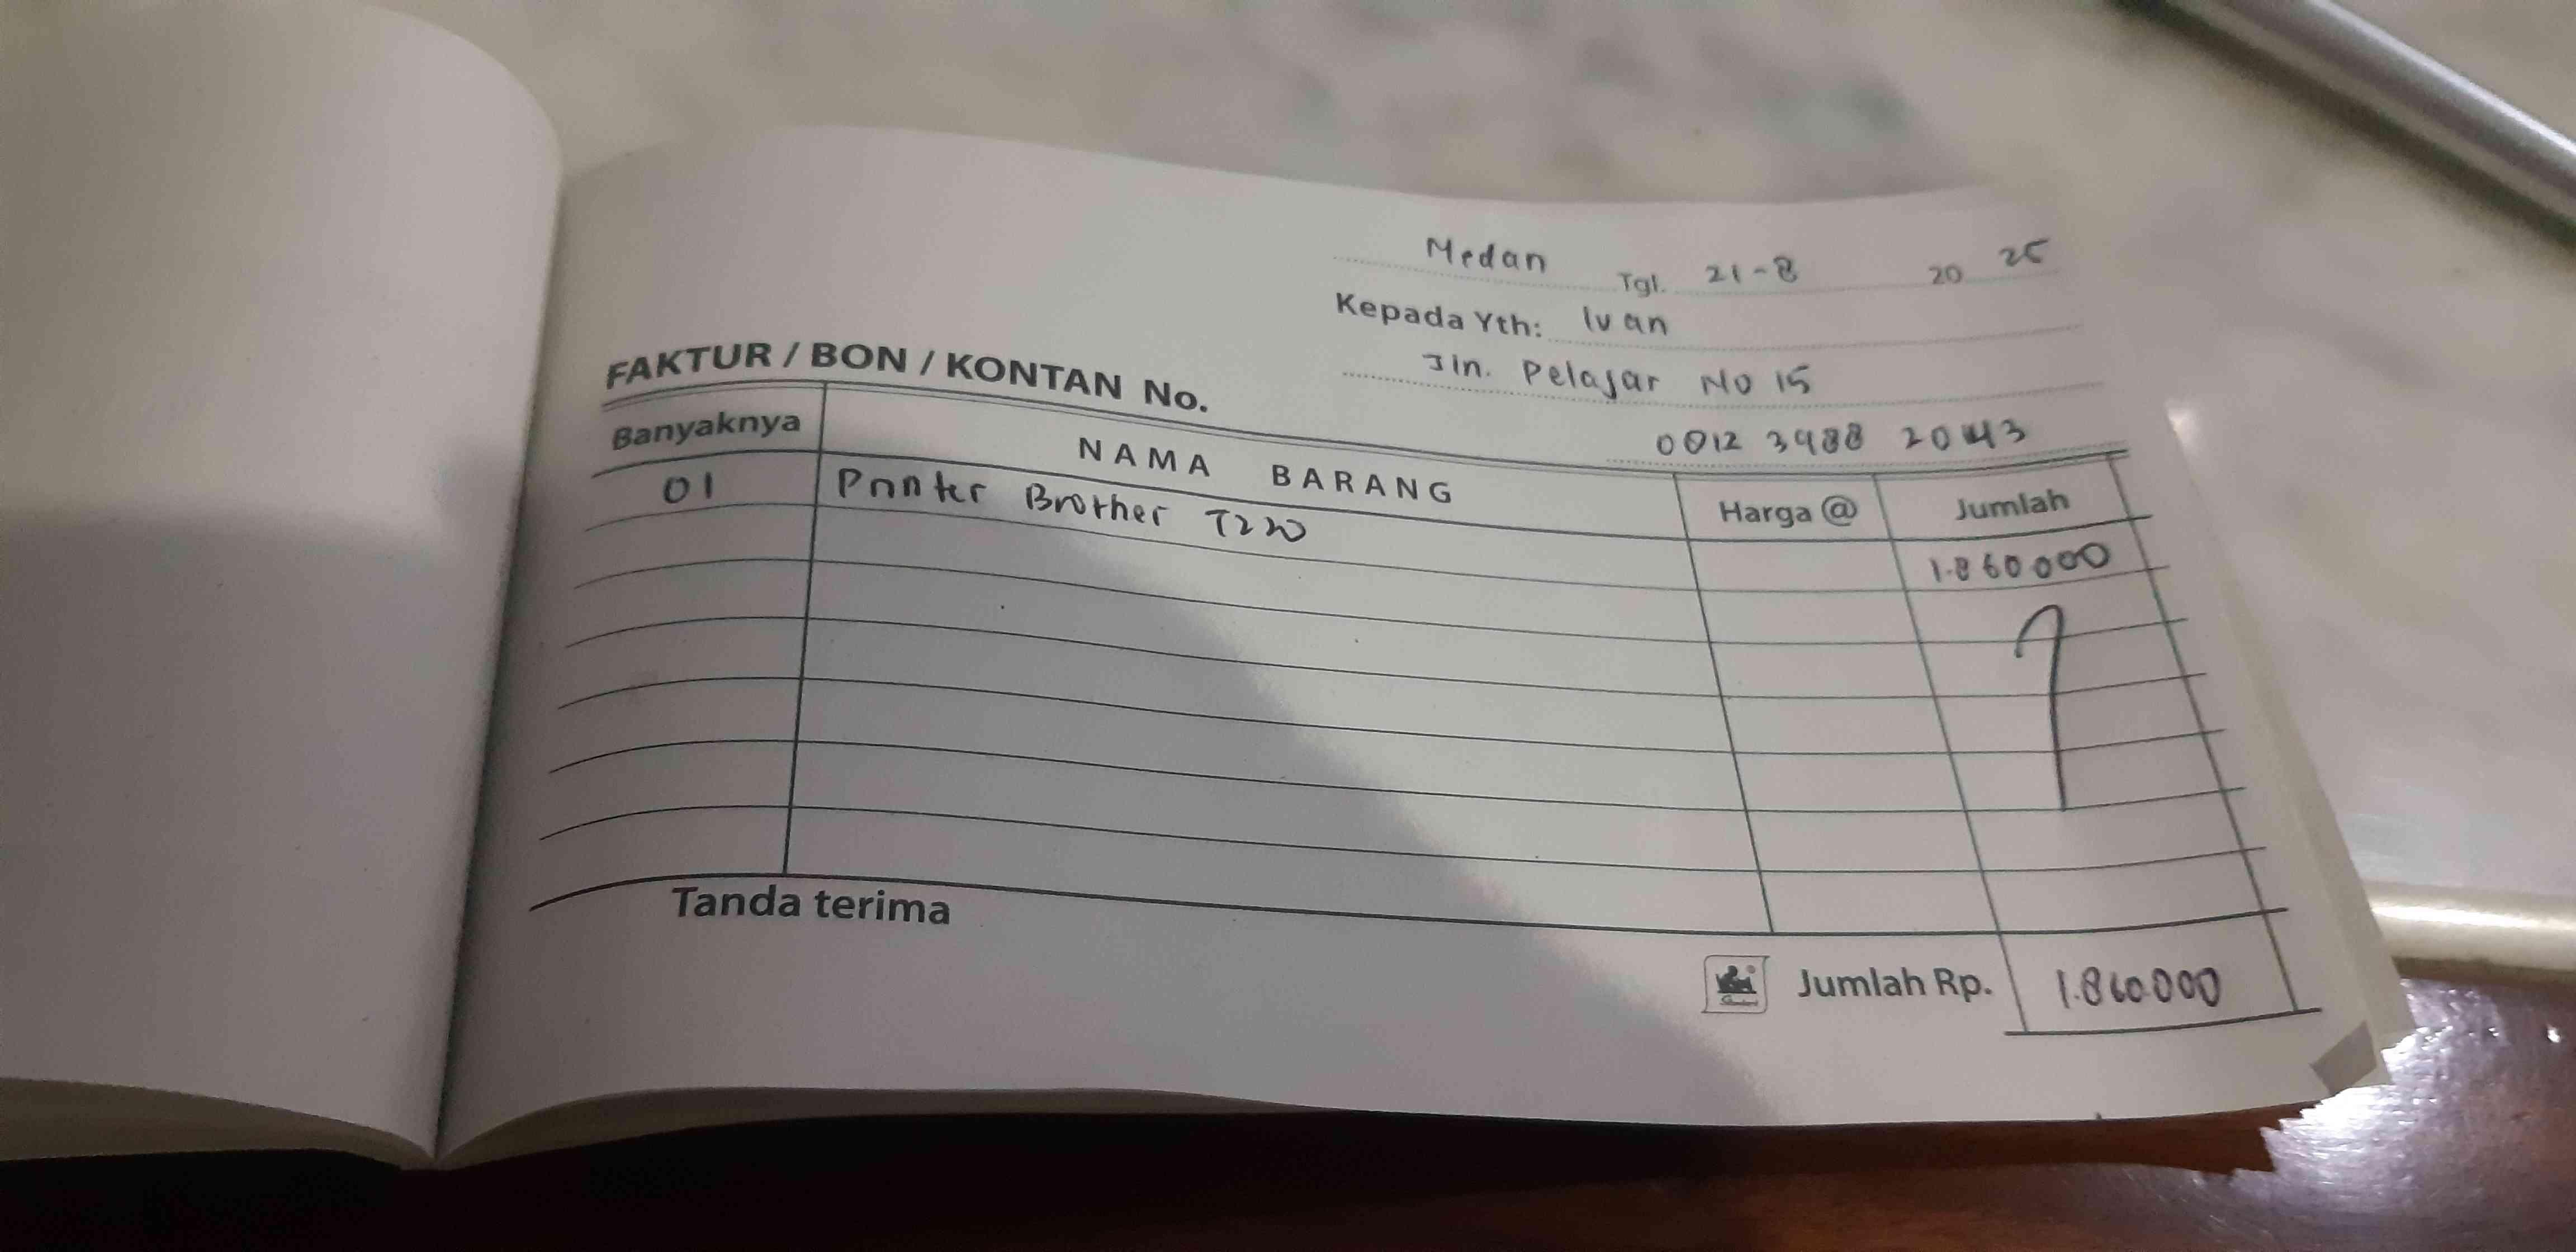 Medan Tgl. 21-8 20 25
Kepada Yth: Ivan
Jln. Pelajar No 15
FAKTUR / BON / KONTAN No.
0812 3988 2043
Banyaknya NAMA BARANG Harga @ Jumlah
01 Printer Brother T220 1.860.000
Tanda terima
Jumlah Rp. 1.860.000